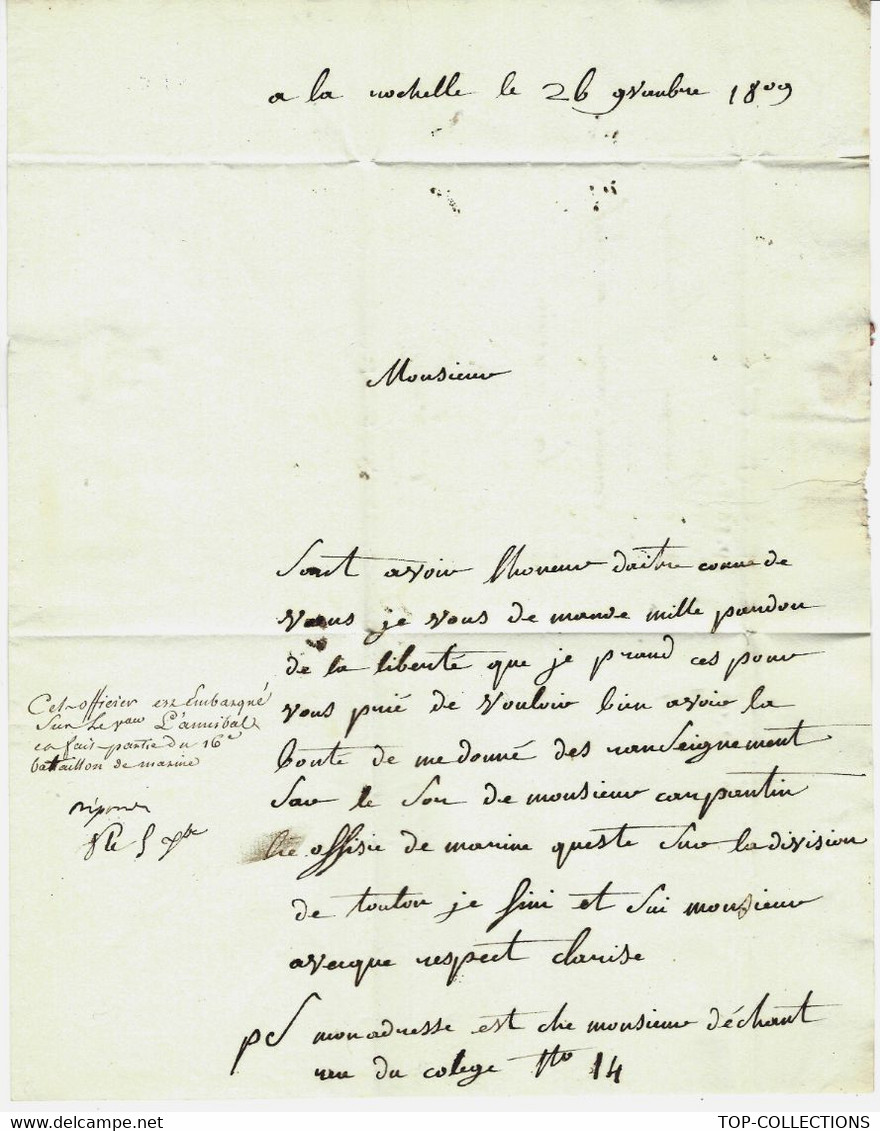 a la rochelle le 26 9vanbre 1809
Monsieur
Sant avoir lhoneur daitre connue de
vous je vous de mande mille pardon
de la liberté que je prand ces pour
vous prié de vouloir bien avoir la
bonte de me donné des ranseignement
Sur le Sor de monsieur carpantin
offisié de marine queste Sur la division
de toulon je fini et Sui monsieur
avecque respect clarise
pS mon adresse est che monsieur déchant
rue du colege No 14
Cet officier est Embarqué
Sur Le vau L'annibal
et fait partie du 16e
bataillon de marine
répondu
le 5 Xbre
TOP-COLLECTIONS